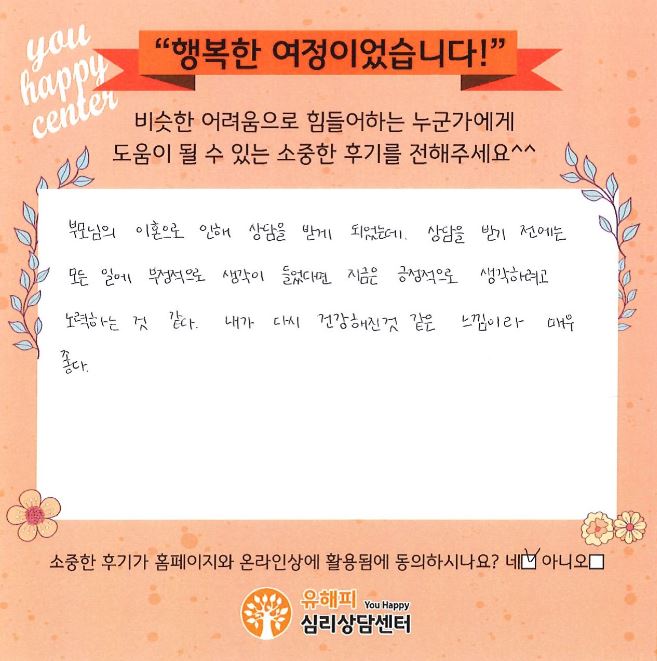 you
happy
center
“행복한 여정이었습니다!”
비슷한 어려움으로 힘들어하는 누군가에게
도움이 될 수 있는 소중한 후기를 전해주세요^^
부모님의 이혼으로 인해 상담을 받게 되었는데. 상담을 받기 전에는
모든 일에 부정적으로 생각이 들었다면 지금은 긍정적으로 생각하려고
노력하는 것 같다. 내가 다시 건강해진것 같은 느낌이라 매우
좋다.
소중한 후기가 홈페이지와 온라인상에 활용됨에 동의하시나요? 네☑ 아니오☐
유해피 You Happy
심리상담센터